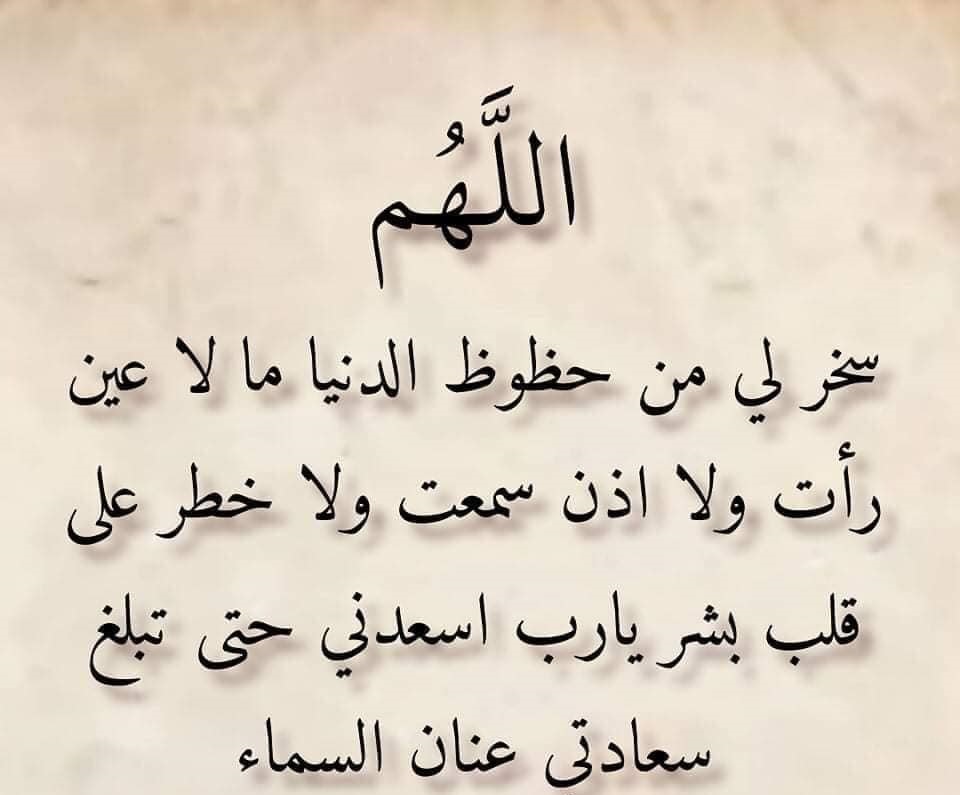 اللَّهُم
سخر لي من حظوظ الدنيا ما لا عين
رأت ولا اذن سمعت ولا خطر على
قلب بشر يارب اسعدني حتى تبلغ
سعادتى عنان السماء